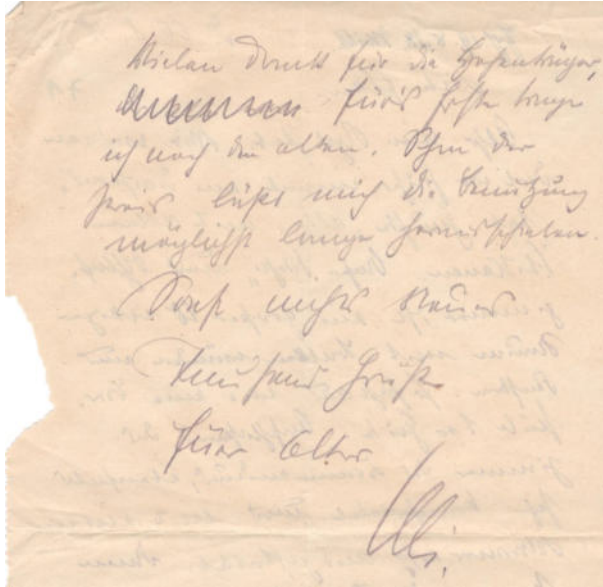 Vielen Dank für die Hosenträger,
für's Erste trage
ich noch die alten. Schon der
Preis läßt mich die Benutzung
möglichst lange herausschieben.
Sonst nichts Neues
Tausend Grüße
Euer Alter
Uli.